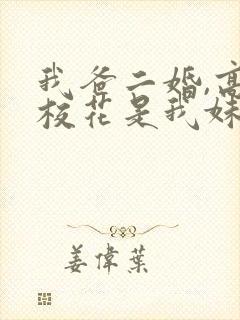 我爸二婚,高
校花是我妹
姜偉葉